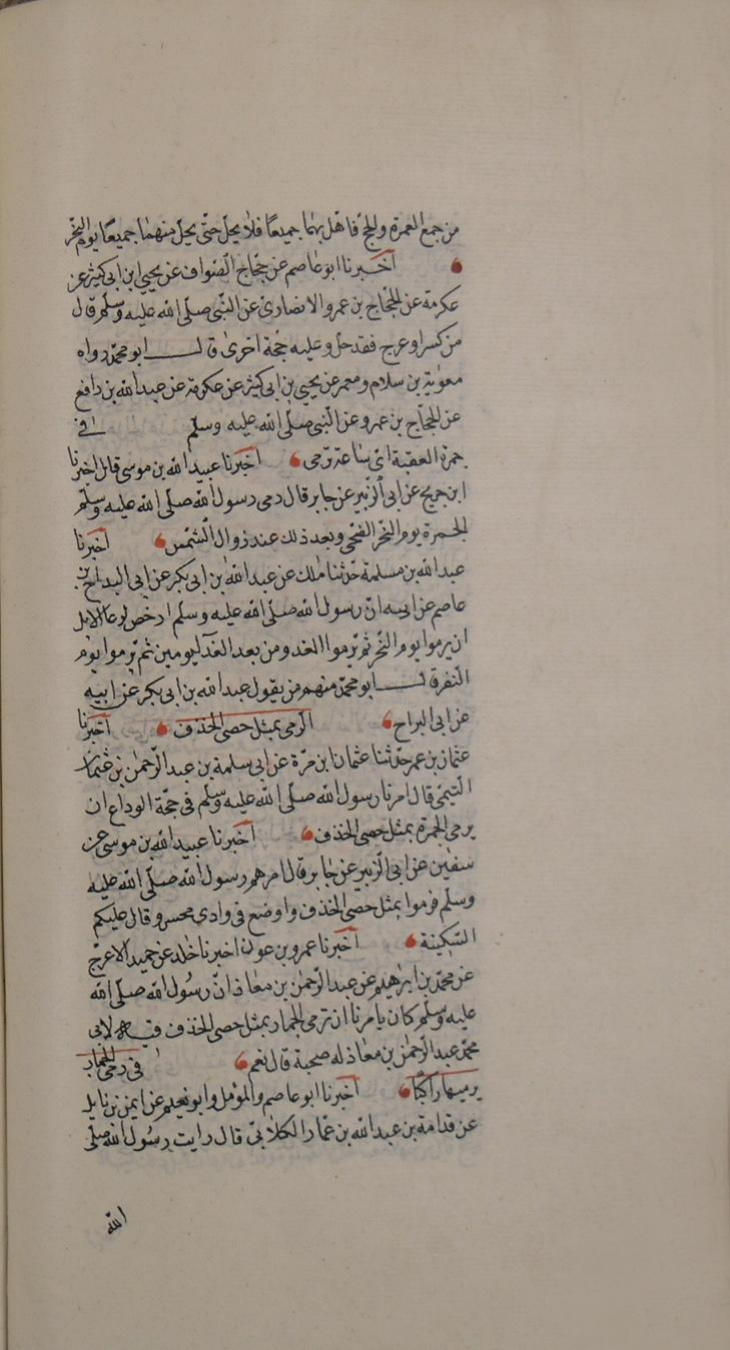 من جمع العمرة والحج فاهل بهما جميعًا فلا يحل حتى يحل منهما جميعًا يوم النحر
اخبرنا ابو عاصم عن حجاج الصواف عن يحيى ابن ابى كثير عن
عكرمة عن الحجاج بن عمرو الانصارى عن النبى صلى الله عليه وسلم قال
من كسر او عرج فقد حل وعليه حجة اخرى قال ابو محمد رواه
معوية بن سلام ومعمر عن يحيى بن ابى كثير عن عكرمة عن عبد الله بن رافع
عن الحجاج بن عمرو عن النبى صلى الله عليه وسلم فى
جمرة العقبة اى ساعة ترمى اخبرنا عبيد الله بن موسى قال اخبرنا
ابن جريج عن ابى الزبير عن جابر قال رمى رسول الله صلى الله عليه وسلم
الجمرة يوم النحر الضحى وبعد ذلك عند زوال الشمس اخبرنا
عبد الله بن مسلمة حدثنا ملك عن عبد الله بن ابى بكر عن ابى البداح بن
عاصم عن ابيه ان رسول الله صلى الله عليه وسلم ارخص لرعا الابل
ان يرموا يوم النحر ثم يرموا الغد ومن بعد الغد ليومين ثم يرموا يوم
النفر قال ابو محمد منهم من يقول عبد الله بن ابى بكر عن ابيه
عن ابى البراح الرمى بمثل حصى الخذف اخبرنا
عثمان بن عمر حدثنا عثمان ابن مرة عن ابى سلمة بن عبد الرحمن بن عثمان
التيمى قال امرنا رسول الله صلى الله عليه وسلم فى حجة الوداع ان
يرمى الجمرة بمثل حصى الخذف اخبرنا عبيد الله بن موسى عن
سفين عن ابى الزبير عن جابر قال امرهم رسول الله صلى الله عليه
وسلم فرموا بمثل حصى الخذف واوضع فى وادى محسر وقال عليكم
السكينة اخبرنا عمرو بن عون اخبرنا خالد عن حميد الاعرج
عن محمد بن ابرهيم عن عبد الرحمن بن معاذ ان رسول الله صلى الله
عليه وسلم كان يامرنا ان نرمى الجمار بمثل حصى الخذف قيل لابى
محمد عبد الرحمن بن معاذ له صحبة قال نعم فى رمى الجمار
يرميها راكبًا اخبرنا ابو عاصم والمؤمل وابو نعيم عن ايمن بن نابل
عن قدامة بن عبد الله بن عمار الكلابى قال رايت رسول الله صلى
الله